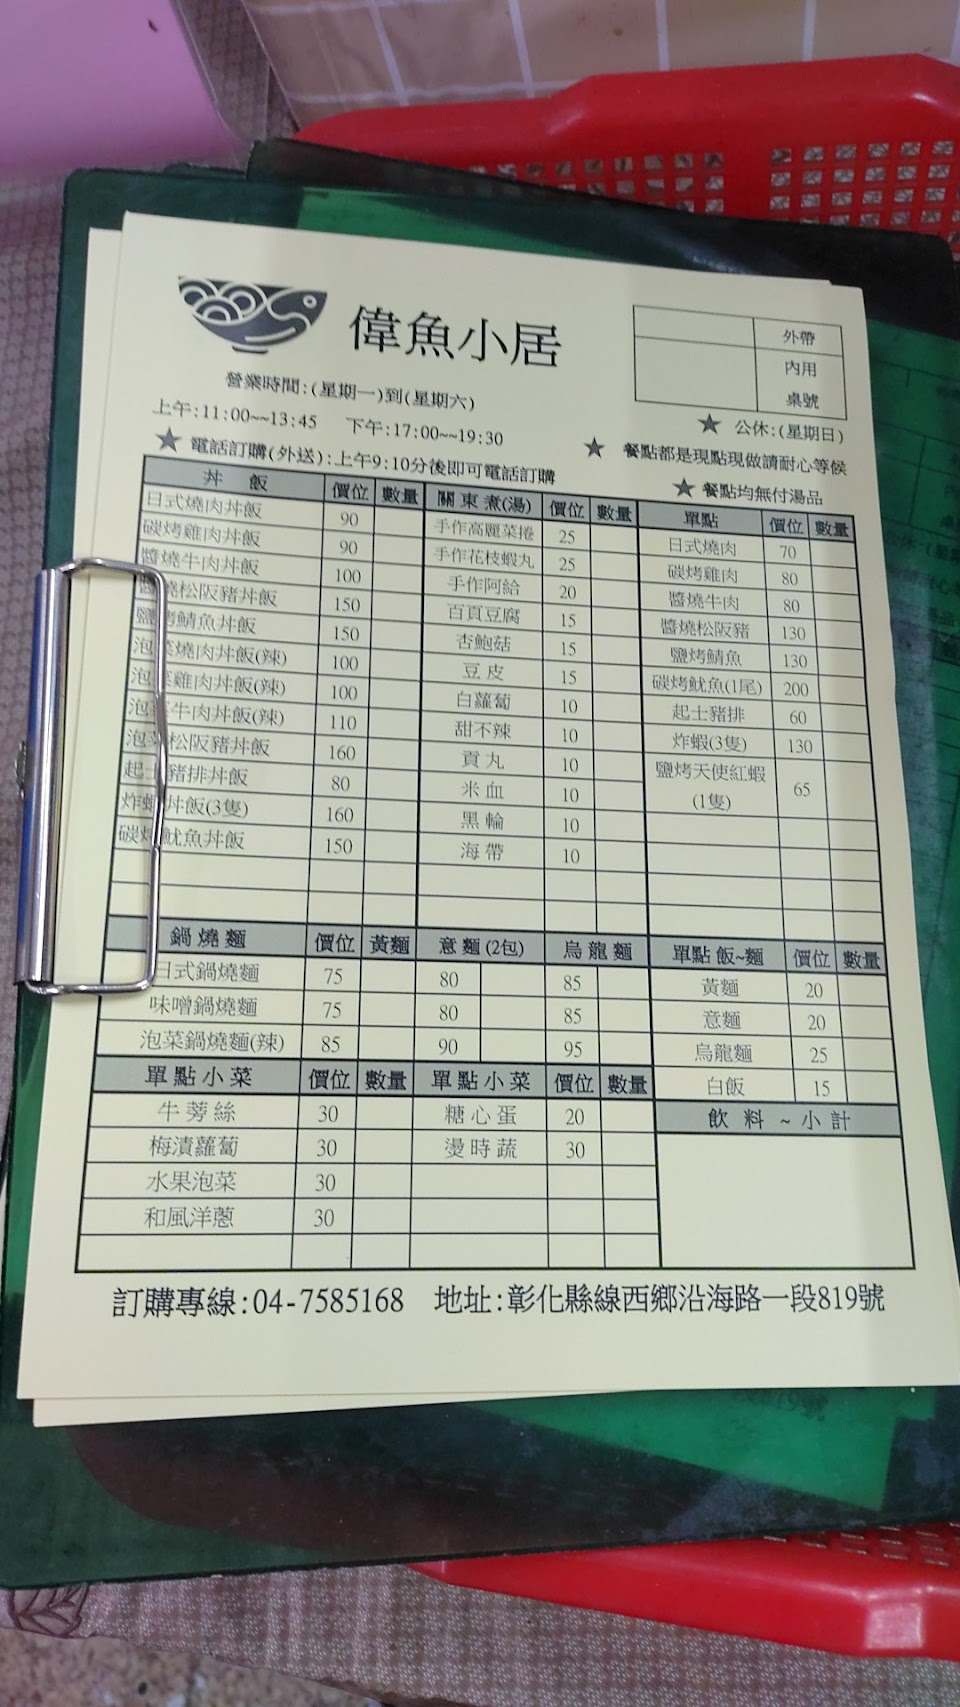 偉魚小居
外帶
內用
桌號
營業時間:(星期一)到(星期六)
上午:11:00~~13:45 下午:17:00~~19:30
★ 公休:(星期日)
★ 電話訂購(外送):上午9:10分後即可電話訂購
★ 餐點都是現點現做請耐心等候
★ 餐點均無付湯品
丼 飯 價位 數量 關東煮(湯) 價位 數量 單點 價位 數量
日式燒肉丼飯 90 手作高麗菜捲 25 日式燒肉 70
碳烤雞肉丼飯 90 手作花枝蝦丸 25 碳烤雞肉 80
醬燒牛肉丼飯 100 手作阿給 20 醬燒牛肉 80
醬燒松阪豬丼飯 150 百頁豆腐 15 醬燒松阪豬 130
鹽烤鯖魚丼飯 150 杏鮑菇 15 鹽烤鯖魚 130
泡菜燒肉丼飯(辣) 100 豆皮 15 碳烤魷魚(1尾) 200
泡菜雞肉丼飯(辣) 100 白蘿蔔 10 起士豬排 60
泡菜牛肉丼飯(辣) 110 甜不辣 10 炸蝦(3隻) 130
泡菜松阪豬丼飯 160 貢丸 10 鹽烤天使紅蝦(1隻) 65
起士豬排丼飯 80 米血 10
炸蝦丼飯(3隻) 160 黑輪 10
碳烤魷魚丼飯 150 海帶 10
鍋燒麵 價位 黃麵 意麵(2包) 烏龍麵 單點飯~麵 價位 數量
日式鍋燒麵 75 80 85 黃麵 20
味噌鍋燒麵 75 80 85 意麵 20
泡菜鍋燒麵(辣) 85 90 95 烏龍麵 25
單點小菜 價位 數量 單點小菜 價位 數量 白飯 15
牛蒡絲 30 糖心蛋 20 飲料~小計
梅漬蘿蔔 30 燙時蔬 30
水果泡菜 30
和風洋蔥 30
訂購專線:04-7585168 地址:彰化縣線西鄉沿海路一段819號